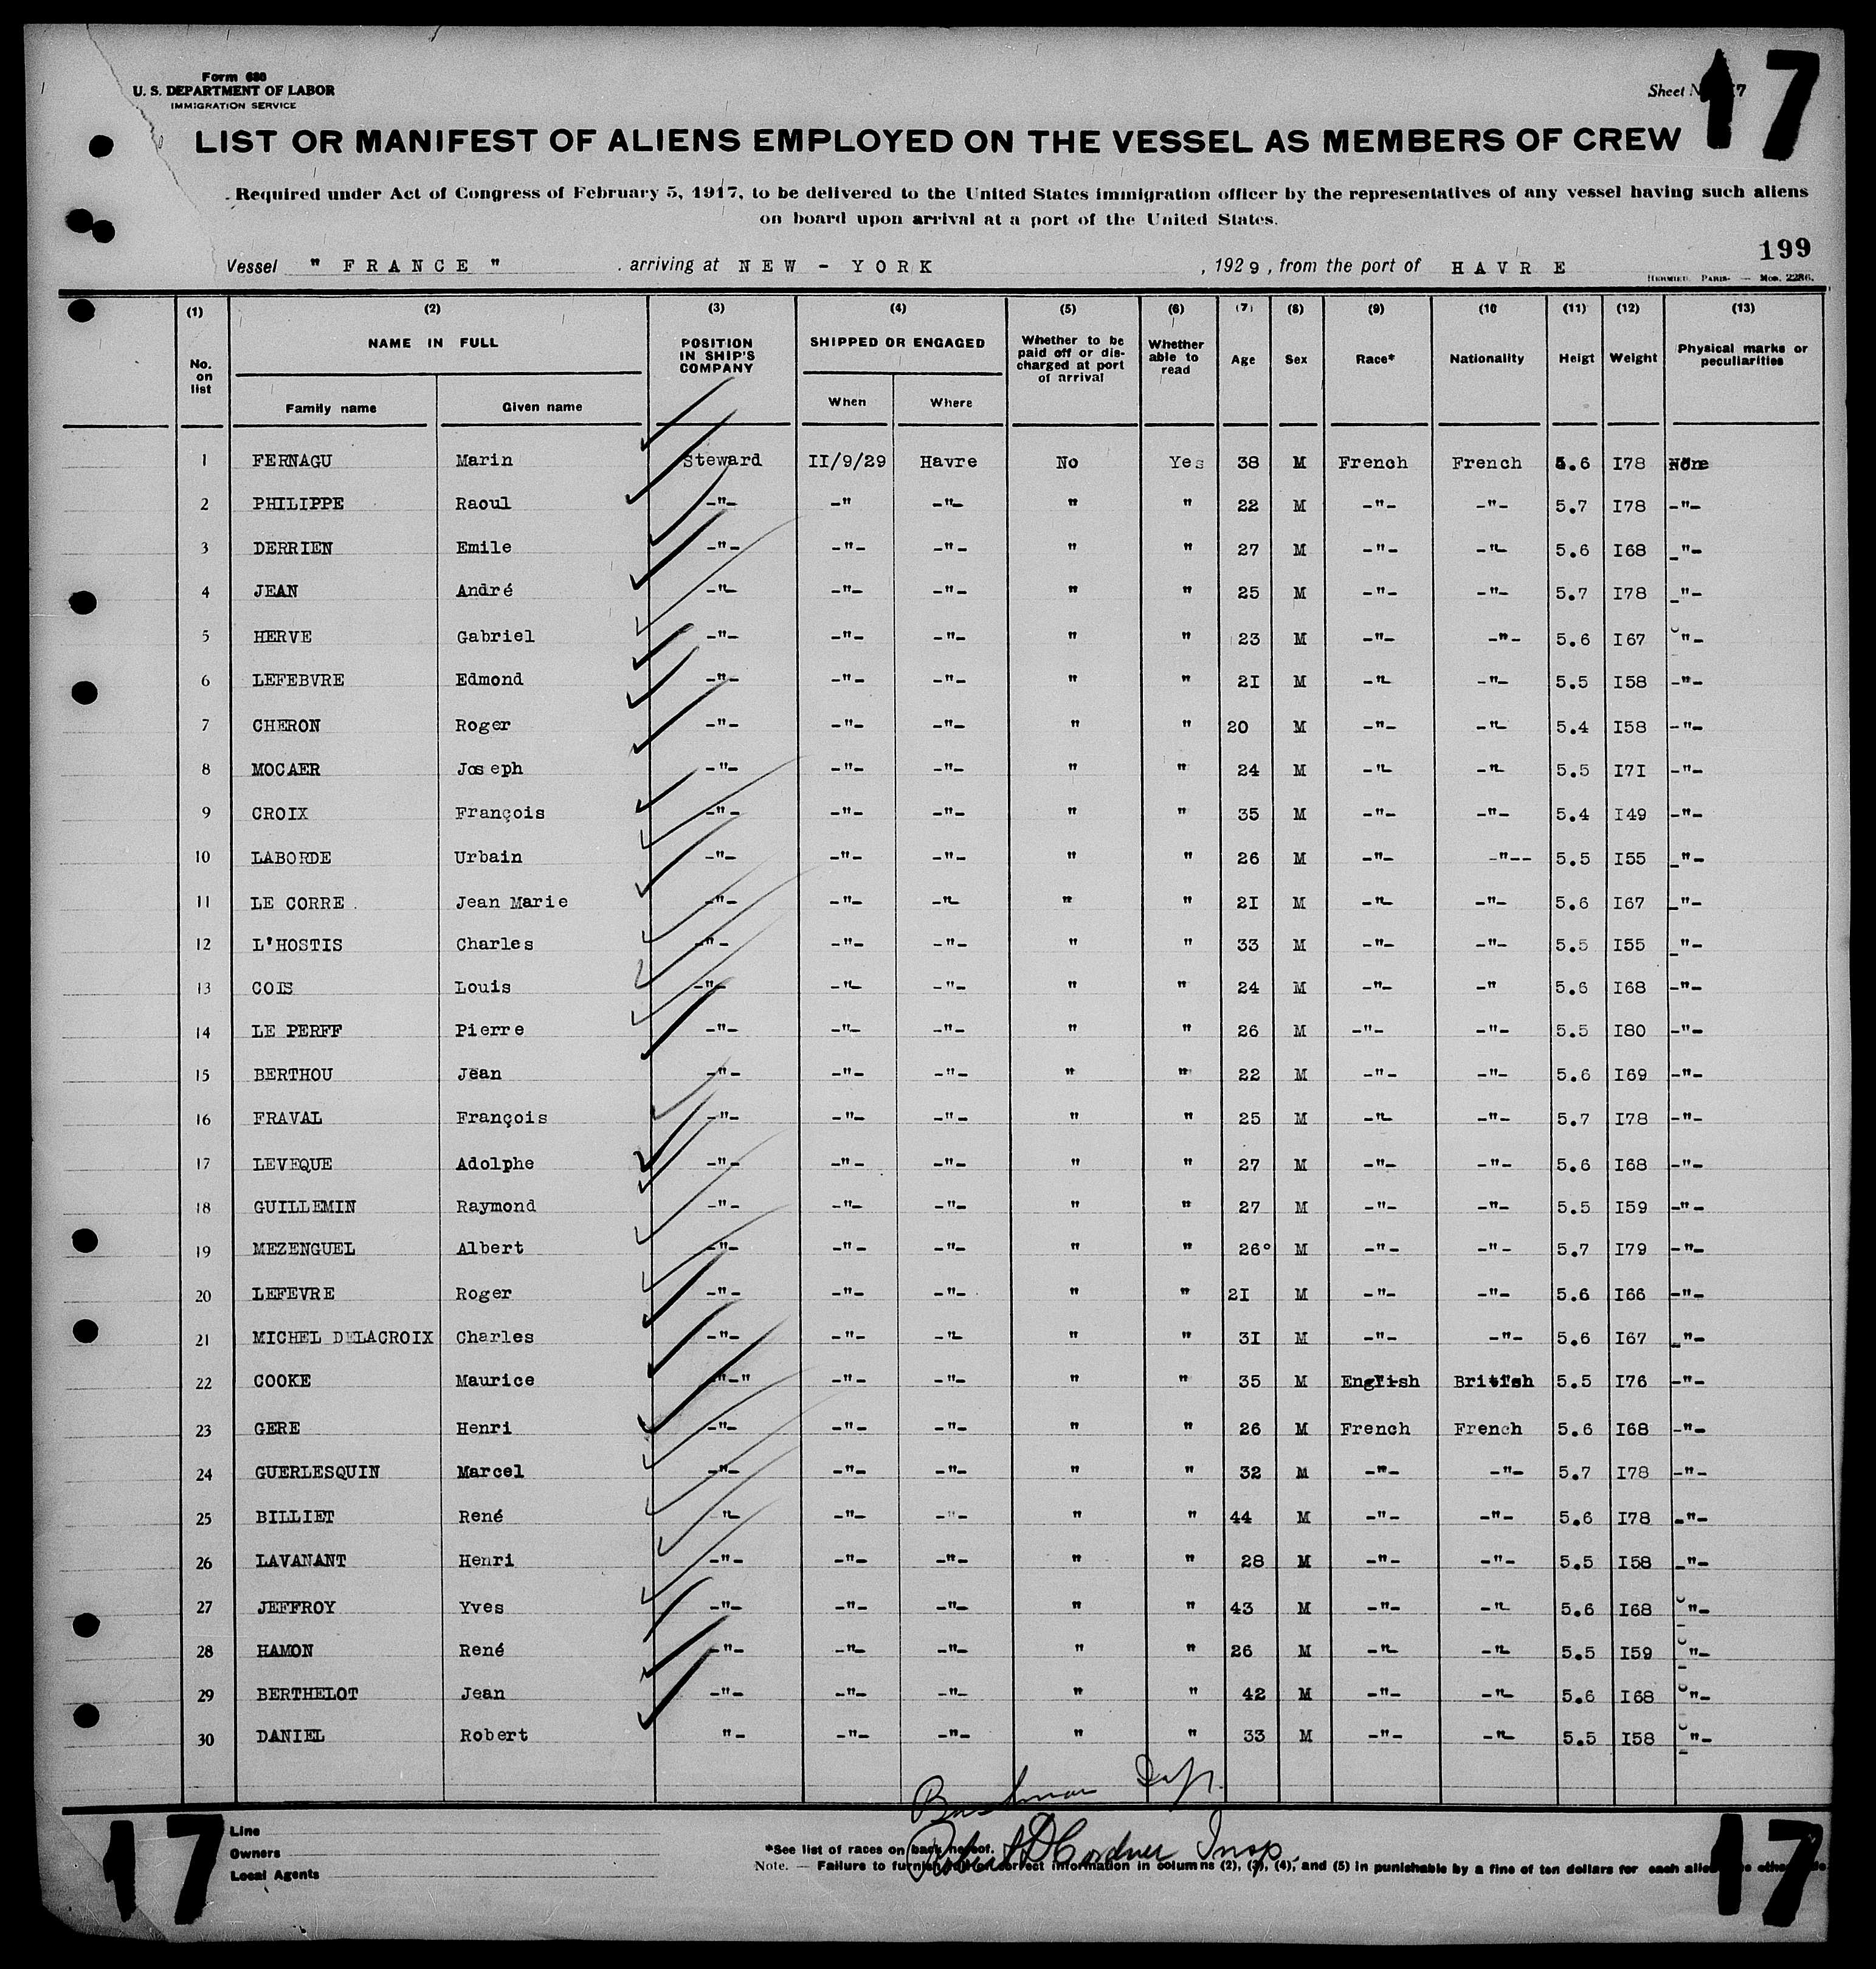 Form 680
U. S. DEPARTMENT OF LABOR
IMMIGRATION SERVICE
Sheet
17
LIST OR MANIFEST OF ALIENS EMPLOYED ON THE VESSEL AS MEMBERS OF CREW
Required under Act of Congress of February 5, 1917, to be delivered to the United States immigration officer by the representatives of any vessel having such aliens
on board upon arrival at a port of the United States.
199
Vessel " FRANCE " arriving at NEW - YORK , 1929, from the port of HAVRE
HERMIEU, PARIS. — Mod. 2286.
(1) (2) (3) (4) (5) (6) (7) (8) (9) (10 (11) (12) (13)
No. on list NAME IN FULL POSITION IN SHIP'S COMPANY SHIPPED OR ENGAGED Whether to be paid off or dis-charged at port of arrival Whether able to read Age Sex Race* Nationality Heigt Weight Physical marks or peculiarities
Family name Given name When Where
1 FERNAGU Marin Steward II/9/29 Havre No Yes 38 M French French 5.6 I78 None
2 PHILIPPE Raoul -"- -" -"- " " 22 M -"- -"- 5.7 I78 -"-
3 DERRIEN Emile -"- -"- -"- " " 27 M -"- -"- 5.6 I68 -"-
4 JEAN André -"- -"- -"- " " 25 M -"- -"- 5.7 I78 -"-
5 HERVE Gabriel -"- -"- -"- " " 23 M -"- -"- 5.6 I67 "-
6 LEFEBVRE Edmond -"- -"- -"- " " 2I M -"- -"- 5.5 I58 -"-
7 CHERON Roger -"- -"- -"- " " 20 M -"- -"- 5.4 I58 -"-
8 MOCAER Joseph -"- -"- -"- " " 24 M -"- -"- 5.5 I7I -"-
9 CROIX François -"- -"- -"- " " 35 M -"- -"- 5.4 I49 -"-
10 LABORDE Urbain -"- -"- -"- " " 26 M -"- -"-- 5.5 I55 -"-
11 LE CORRE Jean Marie -"- -"- -"- " " 2I M -"- -"- 5.6 I67 -"-
12 L'HOSTIS Charles -"- -"- -"- " " 33 M -"- -"- 5.5 I55 -"-
13 COIS Louis -"- -"- -"- " " 24 M -"- -" 5.6 I68 -"-
14 LE PERFF Pierre -"- -"- -"- " " 26 M -"- -"- 5.5 I80 -"-
15 BERTHOU Jean -"- -"- -"- " " 22 M -"- -"- 5.6 I69 -"-
16 FRAVAL François -"- -"- -"- " " 25 M -"- -"- 5.7 I78 -"-
17 LEVEQUE Adolphe -"- -"- -"- " " 27 M -"- -"- 5.6 I68 -"-
18 GUILLEMIN Raymond -"- -"- -"- " " 27 M -"- -"- 5.5 I59 -"-
19 MEZENGUEL Albert -"- -"- -"- " " 26° M -"- -"- 5.7 I79 -"-
20 LEFEVRE Roger -"- -"- -"- " " 2I M -"- -"- 5.6 I66 -"-
21 MICHEL DELACROIX Charles -"- -"- -"- " " 3I M -"- -"- 5.6 I67 -"-
22 COOKE Maurice "-" -"- -"- " " 35 M English British 5.5 I76 -"-
23 GERE Henri -"- -"- -"- " " 26 M French French 5.6 I68 -"-
24 GUERLESQUIN Marcel -"- -"- -"- " " 32 M -"- -"- 5.7 I78 -"-
25 BILLIET René "- -"- -"- " " 44 M -"- -"- 5.6 I78 -"-
26 LAVANANT Henri -"- -"- -"- " " 28 M -"- -"- 5.5 I58 -"-
27 JEFFROY Yves -"- -"- -"- " " 43 M -"- -"- 5.6 I68 "-
28 HAMON René -"- -"- -"- " " 26 M -"- -"- 5.5 I59 "-
29 BERTHELOT Jean -"- -"- -"- " " 42 M -"- -"- 5.6 I68 "-
30 DANIEL Robert "- -"- -"- " " 33 M -"- -"- 5.5 I58 "-
17
17
Line
Owners
Local Agents
Insp.
*See list of races on back hereof.
Note. — Failure to furnish correct information in columns (2), (3), (4), and (5) in punishable by a fine of ten dollars for each